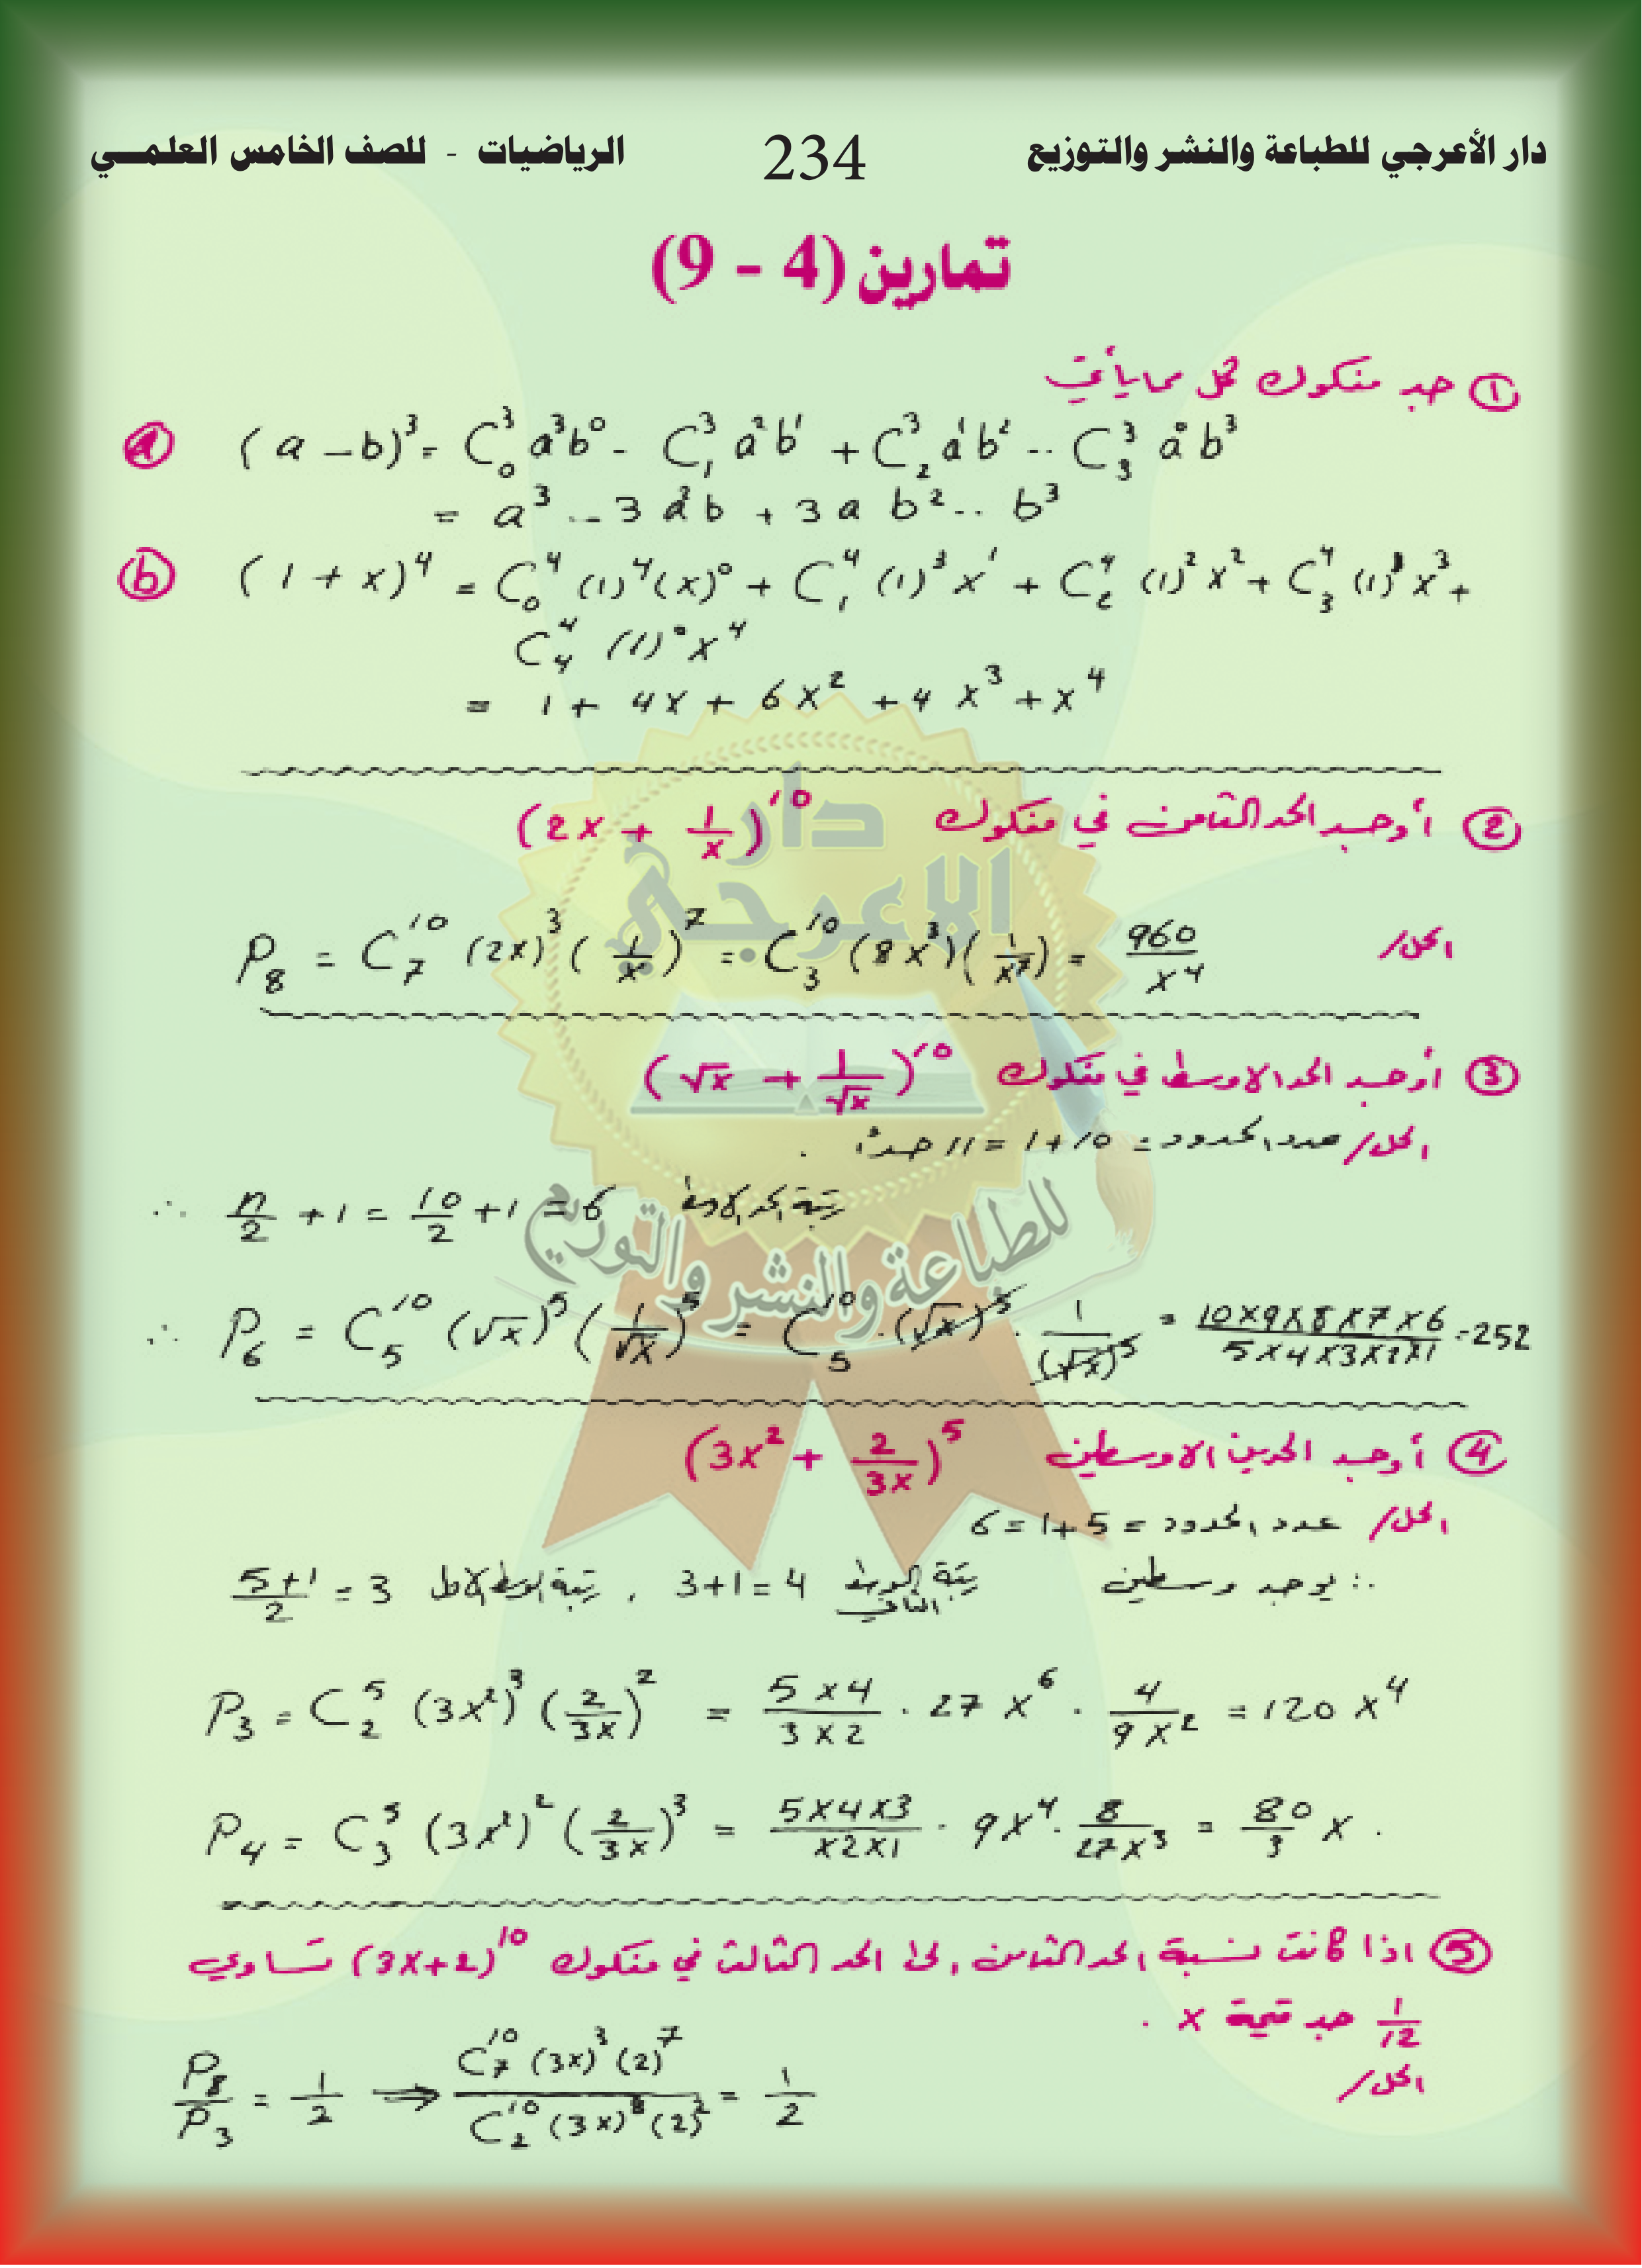 دار الأعرجي للطباعة والنشر والتوزيع 234 الرياضيات - للصف الخامس العلمـــي
تمارين (4 - 9)
① جد منكوك كل مما يأتي
ⓐ (a - b)³ = C₀³ a³b⁰ - C₁³ a²b¹ + C₂³ a¹b² - C₃³ a⁰b³
= a³ - 3a²b + 3ab² - b³
ⓑ (1 + x)⁴ = C₀⁴ (1)⁴(x)⁰ + C₁⁴ (1)³x¹ + C₂⁴ (1)²x² + C₃⁴ (1)³x³ +
C₄⁴ (1)⁰x⁴
= 1 + 4x + 6x² + 4x³ + x⁴
② أوجد الحد الثامن في منكوك (2x + 1/x)¹⁰
الحل/ P₈ = C₇¹⁰ (2x)³ (1/x)⁷ = C₃¹⁰ (8x³)(1/x⁷) = 960/x⁴
③ أوجد الحد الاوسط في منكوك (√x + 1/√x)¹⁰
الحل/ عدد الحدود = 10+1 = 11 حداً .
∴ n/2 + 1 = 10/2 + 1 = 6 رتبة الحد الاوسط
∴ P₆ = C₅¹⁰ (√x)⁵ (1/√x)⁵ = C₅¹⁰ · (√x)⁵ · 1/(√x)⁵ = 10×9×8×7×6/5×4×3×2×1 = 252
④ أوجد الحدين الاوسطين (3x² + 2/3x)⁵
الحل/ عدد الحدود = 5+1 = 6
∴ يوجد وسطين رتبة الوسط الثاني 3+1=4 , رتبة الوسط الاول 5+1/2 = 3
P₃ = C₂⁵ (3x²)³ (2/3x)² = 5×4/3×2 · 27x⁶ · 4/9x² = 120x⁴
P₄ = C₃⁵ (3x²)² (2/3x)³ = 5×4×3/×2×1 · 9x⁴ · 8/27x³ = 80/3 x .
⑤ اذا كانت نسبة الحد الثامن الى الحد الثالث في منكوك (3x+2)¹⁰ تساوي
1/12 جد قيمة x .
الحل/
P₈/P₃ = 1/2 ⟹ C₇¹⁰ (3x)³ (2)⁷/C₂¹⁰ (3x)⁸ (2)² = 1/2
دار
الاعرجي
للطباعة والنشر والتوزيع